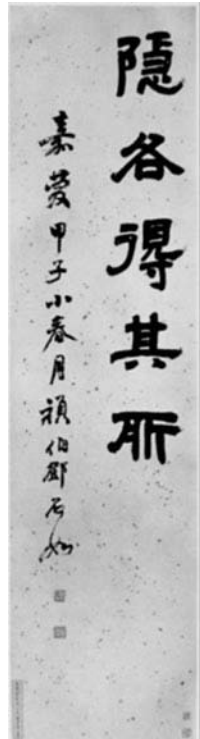 隱各得其所
嘉慶甲子小春月頑伯鄧石如